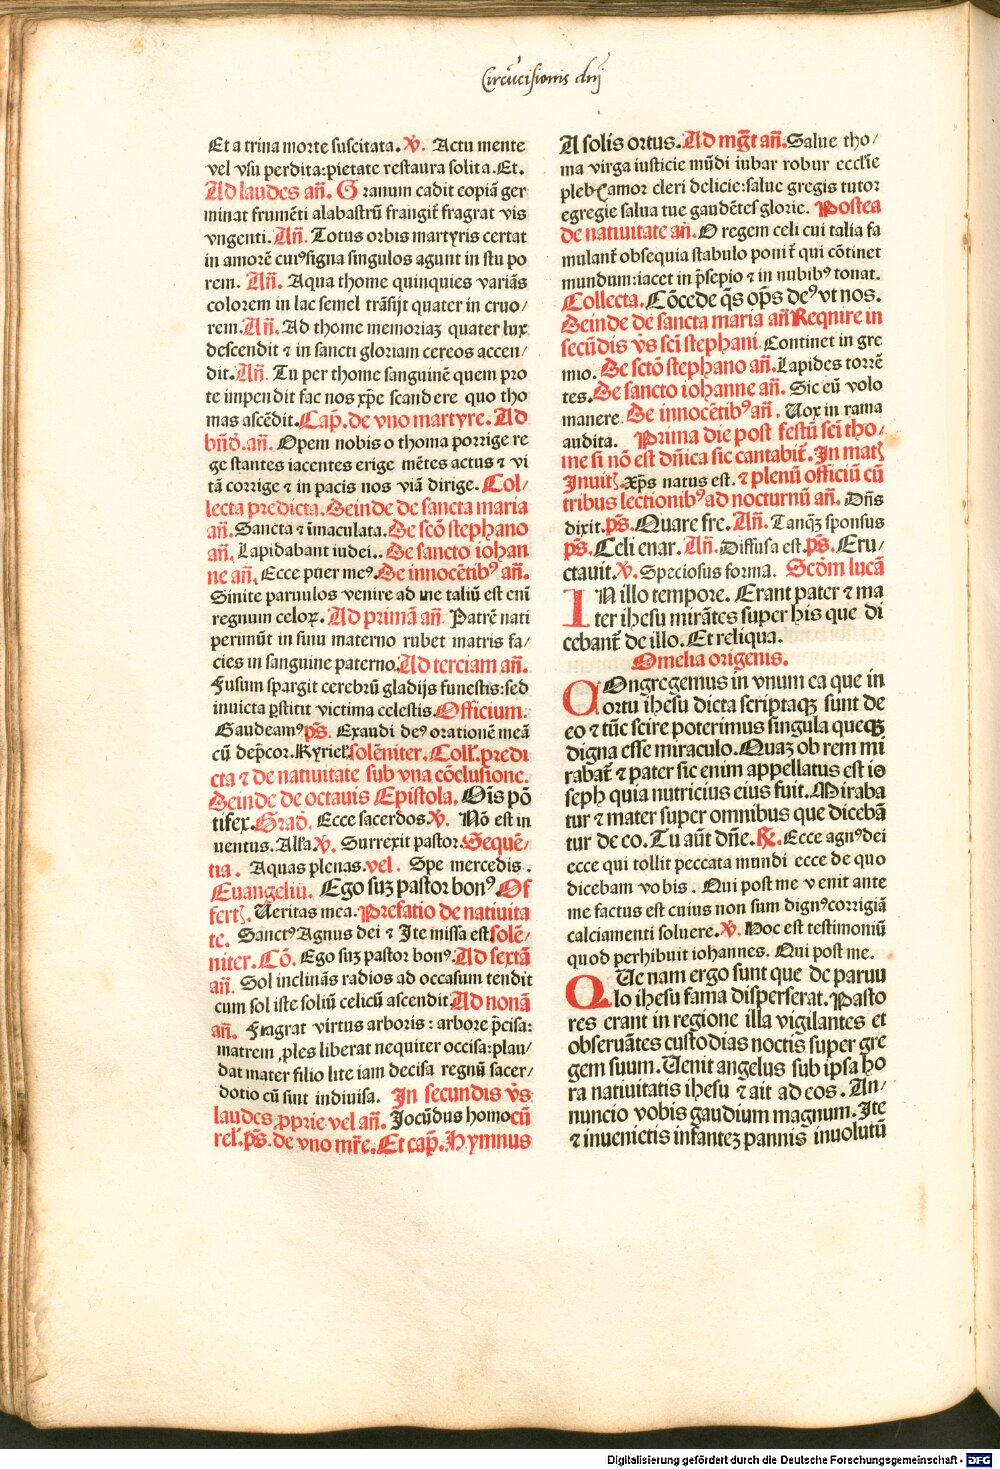 Circūcisionis dnj
Et a trina morte suscitata. ℣. Actu mente
vel vsu perdita: pietate restaura solita. Et.
Ad laudes añ. Granum cadit copiā ger
minat frumēti alabastrū frangit̄ fragrat vis
vngenti. Añ. Totus orbis martyris certat
in amorē cuiꝰ signa singulos agunt in stupo
rem. Añ. Aqua thome quinquies variās
colorem in lac semel trāsijt quater in cruo/
rem. Añ. Ad thome memoriaꝫ quater lux
descendit ⁊ in sancti gloriam cereos accen/
dit. Añ. Tu per thome sanguinē quem pro
te impendit fac nos xp̄e scandere quo tho
mas ascēdit. Cap̄. de vno martyre. Ad
bn̄d̄. añ. Opem nobis o thoma porrige re
ge stantes iacentes erige mētes actus ⁊ vi
tā corrige ⁊ in pacis nos viā dirige. Col/
lecta predicta. Deinde de sancta maria
añ. Sancta ⁊ īmaculata. De scō stephano
añ. Lapidabant iudei. De sancto iohan
ne añ. Ecce puer meꝰ. De innocētibꝰ añ.
Sinite paruulos venire ad me taliū est enī
regnum celoꝝ. Ad primā añ. Patrē nati
perimūt in sinu materno rubet matris fa/
cies in sanguine paterno. Ad terciam añ.
Fusum spargit cerebrū gladijs funestis: sed
inuicta ꝑstitit victima celestis. Officium.
Gaudeamꝰ p̄s. Exaudi deꝰ orationē meā
cū dep̄cor. Kyriel̄ solēniter. Coll̄. predi
cta ⁊ de natiuitate sub vna cōclusione.
Deinde de octauis Epistola. Oīs pō
tifex. Grad̄. Ecce sacerdos. ℣. Nō est in
uentus. All̄a ℣. Surrexit pastor. Sequē/
tia. Aquas plenas. vel. Spe mercedis.
Euangeliū. Ego suꝫ pastor bonꝰ. Of
fert̄. Ueritas mea. Prefatio de natiuita
te. Sanctꝰ Agnus dei ⁊ Ite missa est solē/
niter. Cō. Ego suꝫ pastor bonꝰ. Ad sextā
añ. Sol inclinās radios ad occasum tendit
cum sol iste soliū celicū ascendit. Ad nonā
añ. Fragrat virtus arboris: arbore p̄cisa:
matrem ꝓles liberat nequiter occisa: plau/
dat mater filio lite iam decisa regnū sacer/
dotio cū sunt indiuisa. In secundis v̄s
laudes ꝓprie vel añ. Jocūdus homo cū
rel̄. p̄s. de vno mr̄e. Et cap̄. Hymnus
A solis ortus. Ad mḡt añ. Salue tho/
ma virga iusticie mūdi iubar robur eccl̄ie
plebꝭ amor cleri delicie: salue gregis tutor
egregie salua tue gaudētes glorie. Postea
de natiuitate añ. O regem celi cui talia fa
mulant̄ obsequia stabulo ponit̄ qui cōtinet
mundum: iacet in p̄sepio ⁊ in nubibꝰ tonat.
Collecta. Cōcede q̄s op̄s deꝰ vt nos.
Deinde de sancta maria añ Require in
secūdis v̄s scī stephani. Continet in gre
mio. De sctō stephano añ. Lapides torrē
tes. De sancto iohanne añ. Sic eū volo
manere. De innocētibꝰ añ. Uox in rama
audita. Prima die post festū scī tho/
me si nō est dn̄ica sic cantabit̄. In mat̄
Inuit̄. Xp̄s natus est. ⁊ plenū officiū cū
tribus lectionibꝰ ad nocturnū añ. Dn̄s
dixit. p̄s. Quare fre. Añ. Tanqꝫ sponsus
p̄s. Celi enar. Añ. Diffusa est. p̄s. Eru/
ctauit. ℣. Speciosus forma. Scd̄m lucā
IN illo tempore. Erant pater ⁊ ma
ter ihesu mirātes super his que di
cebant̄ de illo. Et reliqua.
Omelia origenis.
COngregemus in vnum ea que in
ortu ihesu dicta scriptaqꝫ sunt de
eo ⁊ tūc scire poterimus singula queqꝫ
digna esse miraculo. Quaꝫ ob rem mi
rabat̄ ⁊ pater sic enim appellatus est io
seph quia nutricius eius fuit. Miraba
tur ⁊ mater super omnibus que dicebā
tur de eo. Tu aūt dn̄e. ℟. Ecce agnꝰ dei
ecce qui tollit peccata mundi ecce de quo
dicebam vobis. Qui post me venit ante
me factus est cuius non sum dignꝰ corrigiā
calciamenti soluere. ℣. Hoc est testimoniū
quod perhibuit iohannes. Qui post me.
QUe nam ergo sunt que de paruu
lo ihesu fama disperserat. Pasto
res erant in regione illa vigilantes et
obseruātes custodias noctis super gre
gem suum. Uenit angelus sub ipsa ho
ra natiuitatis ihesu ⁊ ait ad eos. An/
nuncio vobis gaudium magnum. Ite
⁊ inuenietis infanteꝫ pannis inuolutū
Digitalisierung gefördert durch die Deutsche Forschungsgemeinschaft - DFG